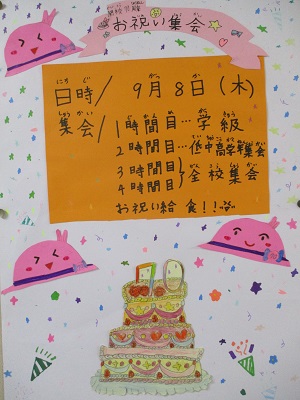 お祝い集会
日時/ 9月 8日(木)
集会/ 1時間目…学級
2時間目…低中高学年集会
3時間目
4時間目
}全校集会
お祝い給食!!
70